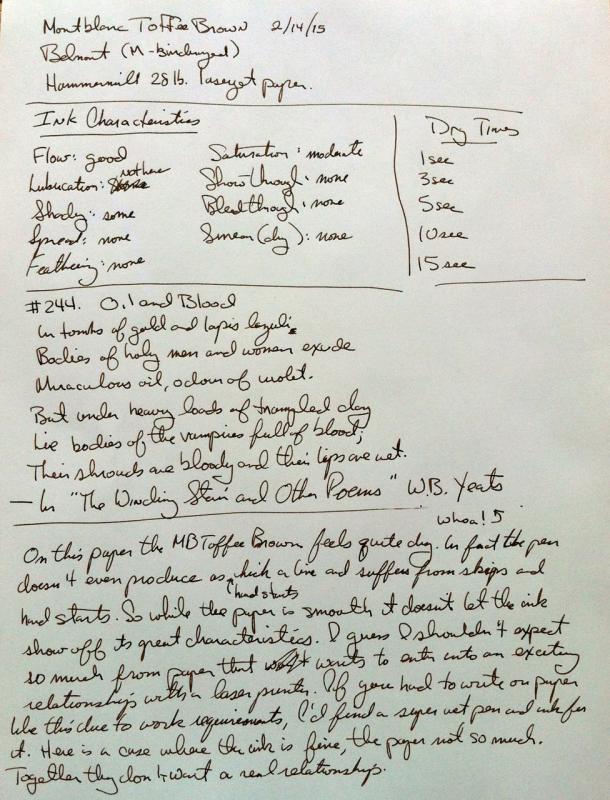 Montblanc Toffee Brown 2/14/15
Belmont (M-Binderized)
Hammermill 28 lb. laserjet paper.
Ink Characteristics
Dry Times
Flow: good
Saturation: moderate
1 sec
Lubrication: not here
Show through: none
3 sec
Shading: some
Bleedthrough: none
5 sec
Spread: none
Smear (dry): none
10 sec
Feathering: none
15 sec
#244. Oil and Blood
In tombs of gold and lapis lazuli
Bodies of holy men and women exude
Miraculous oil, odour of violet.
But under heavy loads of trampled clay
Lie bodies of the vampires full of blood;
Their shrouds are bloody and their lips are wet.
— In "The Winding Stair and Other Poems" W.B. Yeats
whoa!
On this paper the MB Toffee Brown feels quite dry. In fact the pen
doesn't even produce as thick a line and suffers from skips and
hard starts
hard starts. So while the paper is smooth it doesn't let the ink
show off its great characteristics. I guess I shouldn't expect
so much from paper that wants to enter into an exciting
relationship with a laser printer. If you had to write on paper
like this due to work requirements, I'd find a super wet pen and ink for
it. Here is a case where the ink is fine, the paper not so much.
Together they don't want a real relationship.